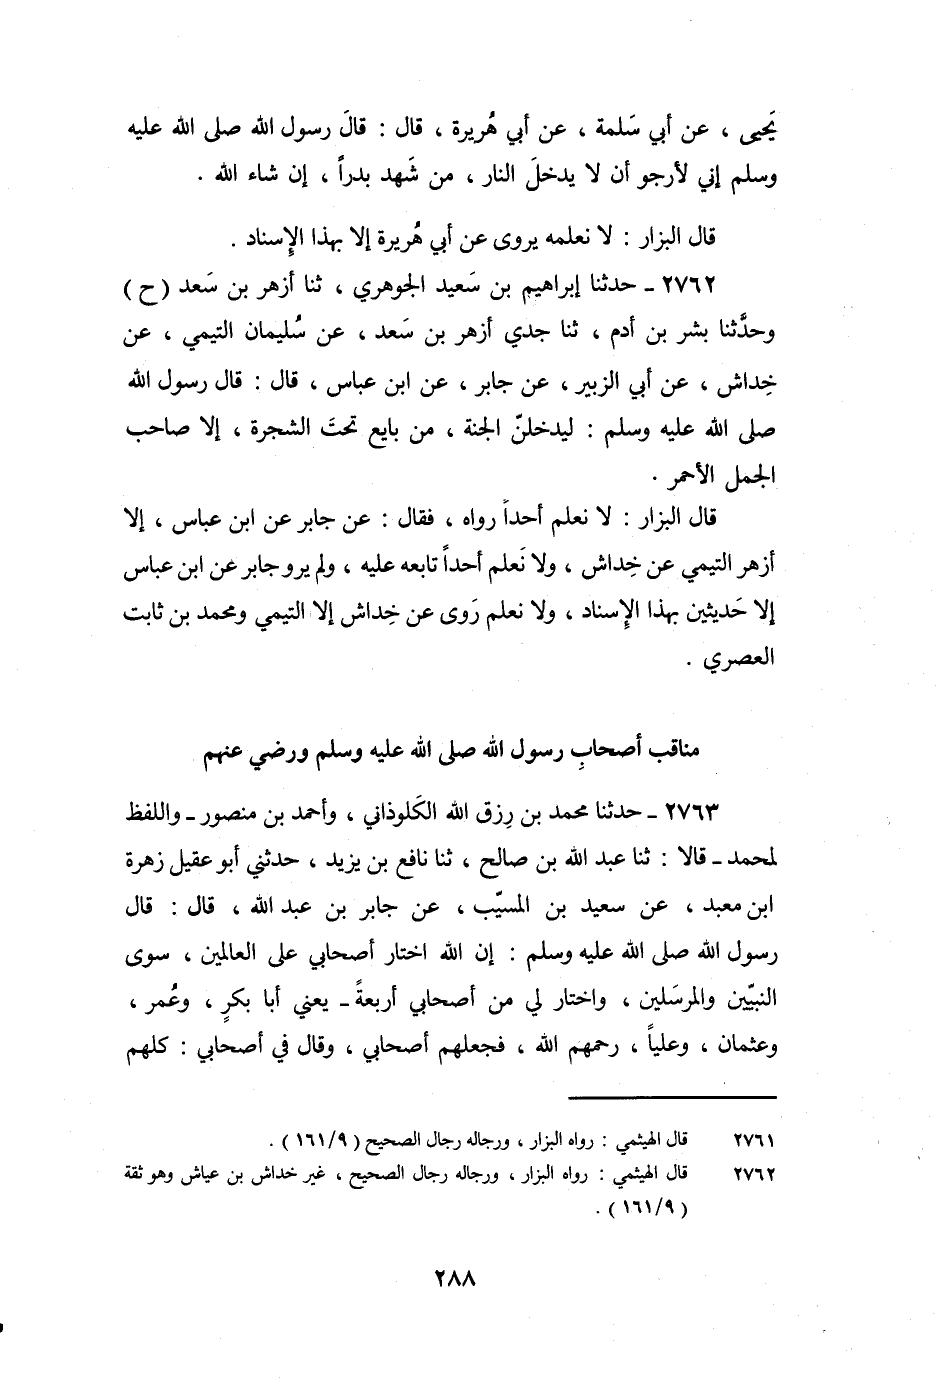 يَحيى ، عن أبي سَلمة ، عن أبي هُريرة ، قال : قالَ رسول الله صلى الله عليه
وسلم إني لأرجو أن لا يدخلَ النار ، من شَهد بدراً ، إن شاء الله .
قال البزار : لا نعلمه يروى عن أبي هُريرة إلا بهذا الإِسناد .
٢٧٦٢ ـ حدثنا إبراهيم بن سَعيد الجوهري ، ثنا أزهر بن سَعد ( ح )
وحدَّثنا بشر بن أدم ، ثنا جدي أزهر بن سَعد ، عن سُليمان التيمي ، عن
خِداش ، عن أبي الزبير ، عن جابر ، عن ابن عباس ، قال : قال رسول الله
صلى الله عليه وسلم : ليدخلنّ الجنة ، من بايع تحتَ الشجرة ، إلا صاحب
الجمل الأحمر .
قال البزار : لا نعلم أحداً رواه ، فقال : عن جابر عن ابن عباس ، إلا
أزهر التيمي عن خِداش ، ولا نَعلم أحداً تابعه عليه ، ولم يرو جابر عن ابن عباس
إلا حَديثين بهذا الإِسناد ، ولا نعلم رَوى عن خِداش إلا التيمي ومحمد بن ثابت
العصري .
مناقب أصحابِ رسول الله صلى الله عليه وسلم ورضي عنهم
٢٧٦٣ ـ حدثنا محمد بن رِزق الله الكَلوذاني ، وأحمد بن منصور ـ واللفظ
لمحمد ـ قالا : ثنا عبد الله بن صالح ، ثنا نافع بن يزيد ، حدثني أبو عقيل زهرة
ابن معبد ، عن سعيد بن المسيّب ، عن جابر بن عبد الله ، قال : قال
رسول الله صلى الله عليه وسلم : إن الله اختار أصحابي على العالمين ، سوى
النبيّين والمرسَلين ، واختار لي من أصحابي أربعةً ـ يعني أبا بكرٍ ، وعُمر ،
وعثمان ، وعلياً ، رحمهم الله ، فجعلهم أصحابي ، وقال في أصحابي : كلهم
٢٧٦١ قال الهيثمي : رواه البزار ، ورجاله رجال الصحيح ( ٩/١٦١ ) .
٢٧٦٢ قال الهيثمي : رواه البزار ، ورجاله رجال الصحيح ، غير خداش بن عياش وهو ثقة
( ٩/١٦١ ) .
٢٨٨